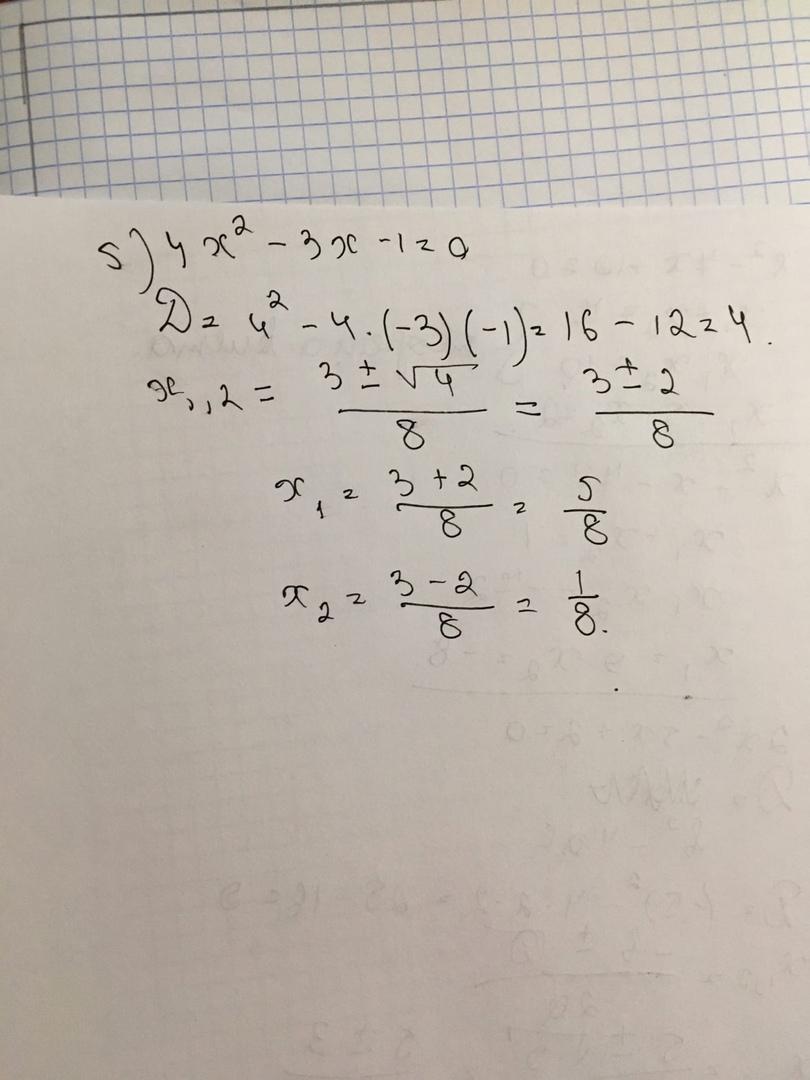 5) 4x² - 3x - 1 = 0
D = 4² - 4 · (-3)(-1) = 16 - 12 = 4.
x₁,₂ = (3 ± √4)/8 = (3 ± 2)/8
x₁ = (3 + 2)/8 = 5/8
x₂ = (3 - 2)/8 = 1/8.